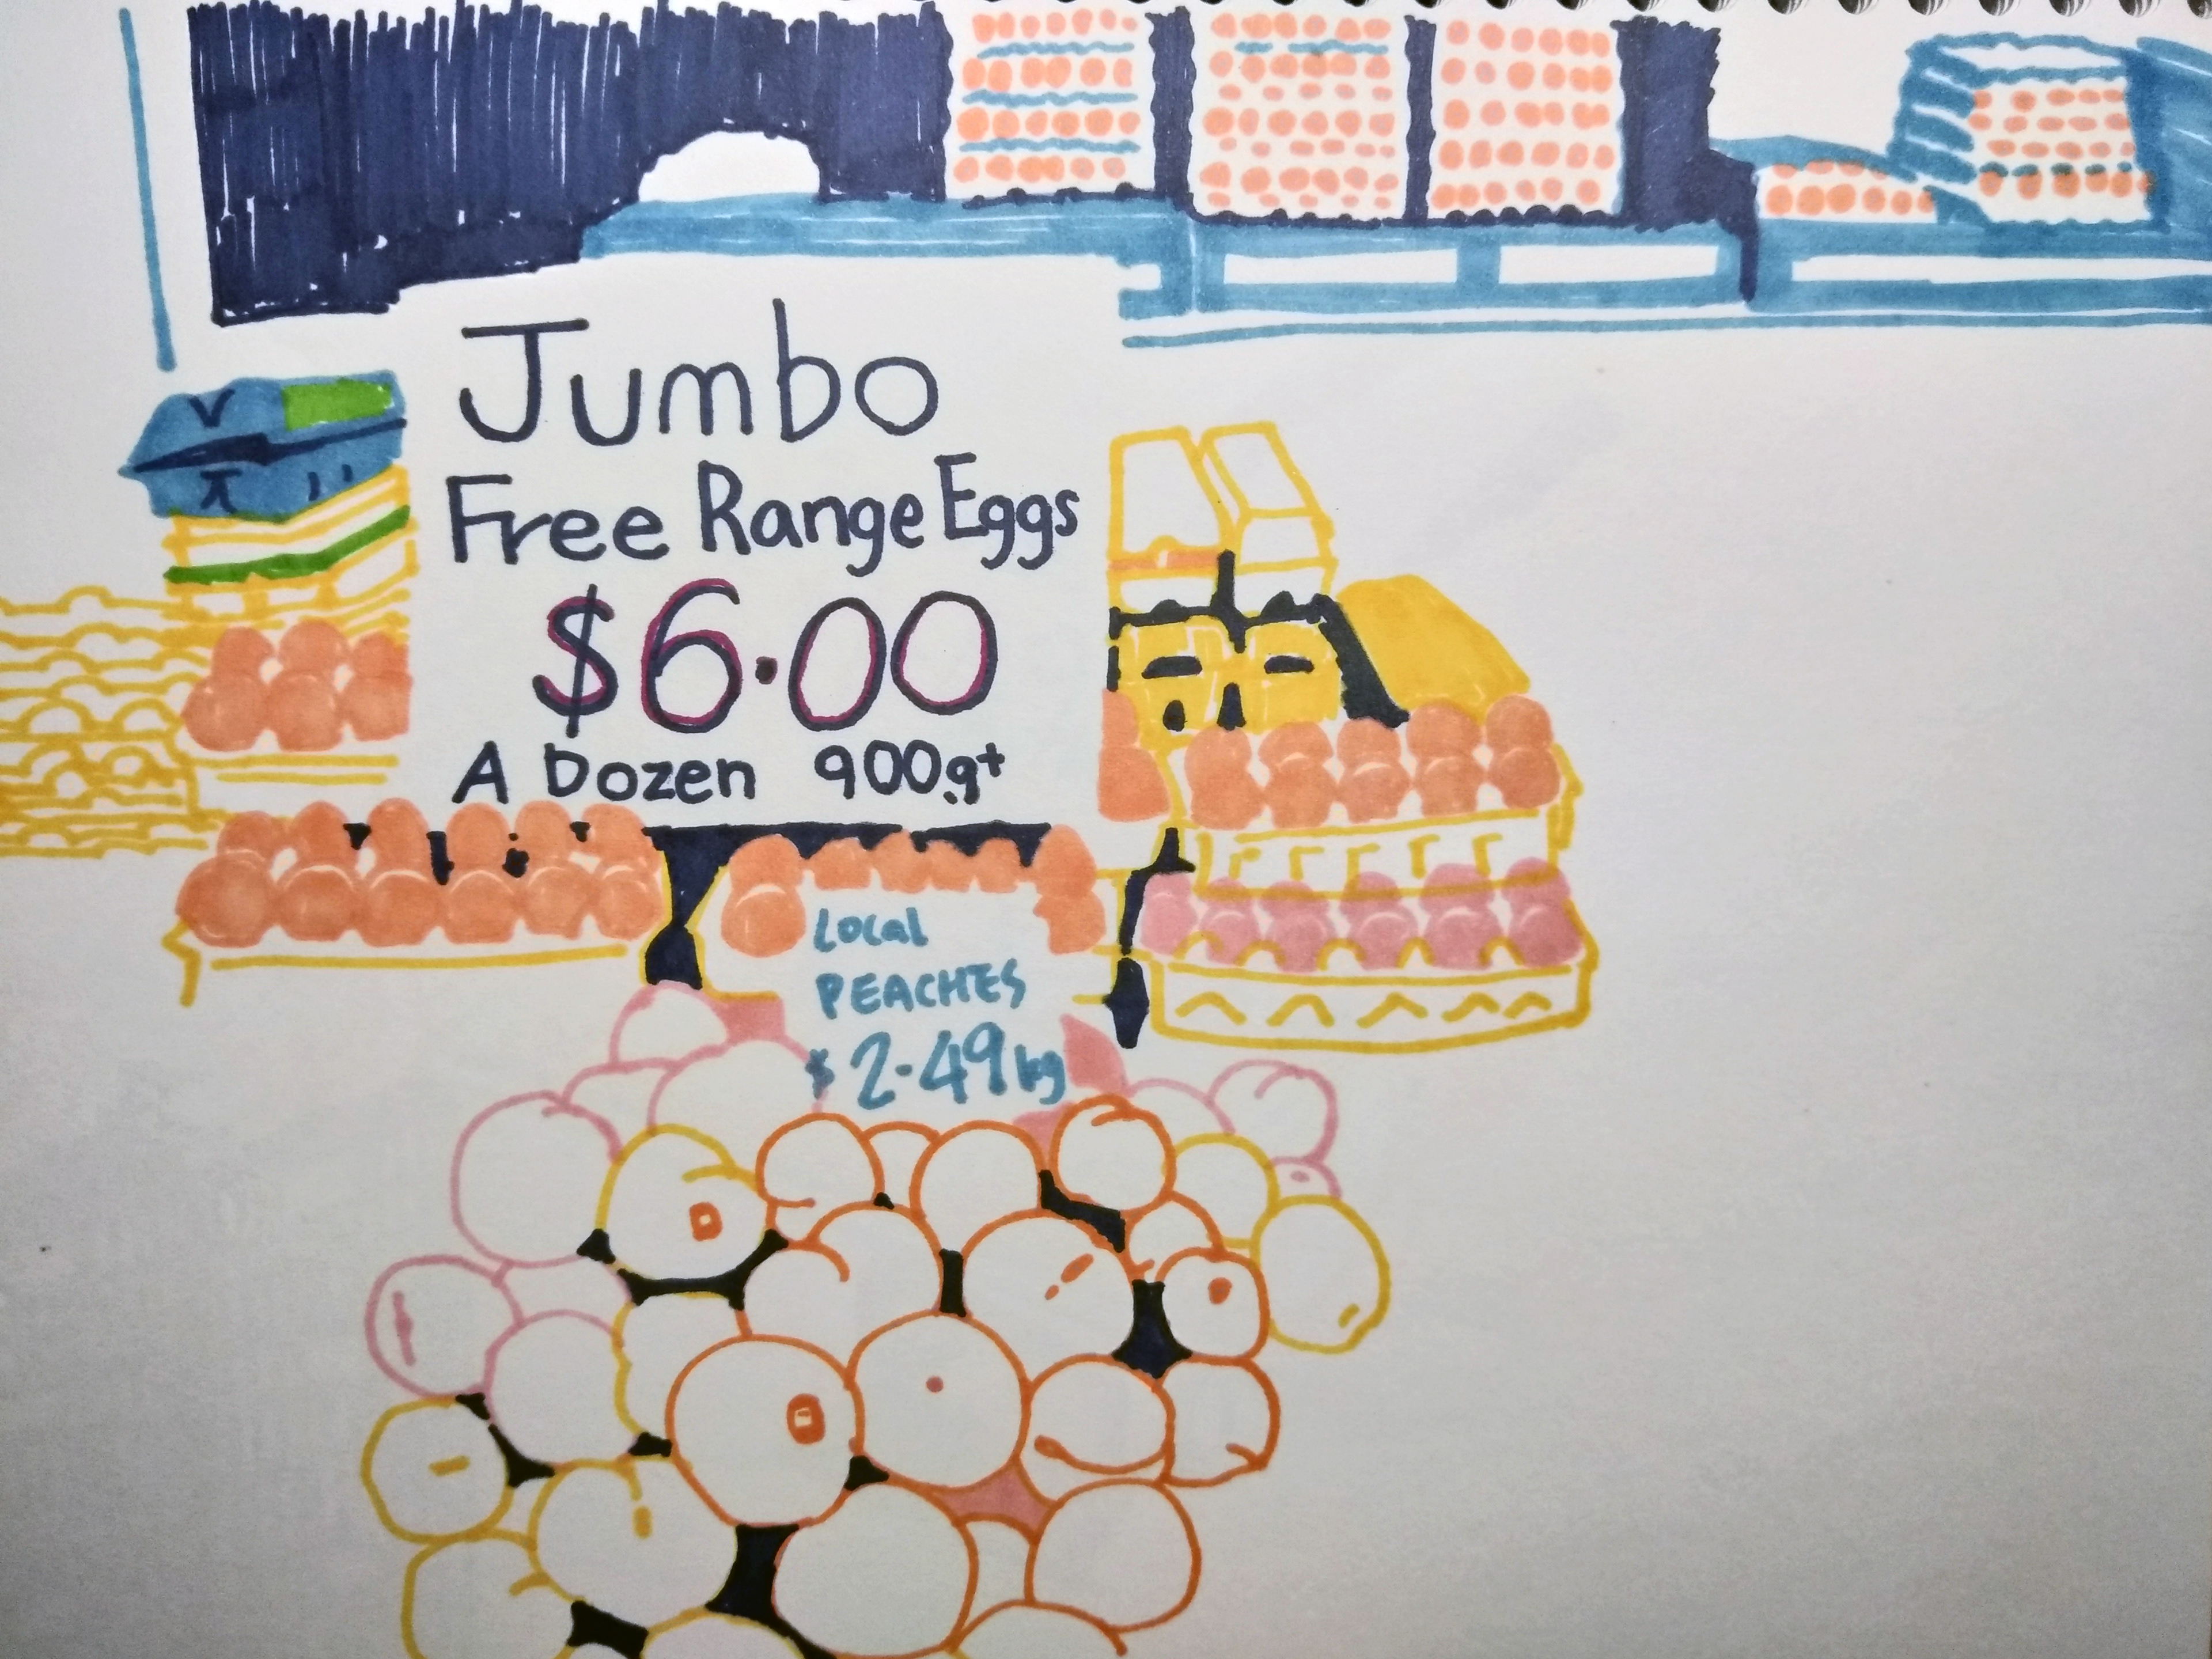 Jumbo
Free Range Eggs
$6.00
A Dozen 900g+
Local
PEACHES
$2.49kg